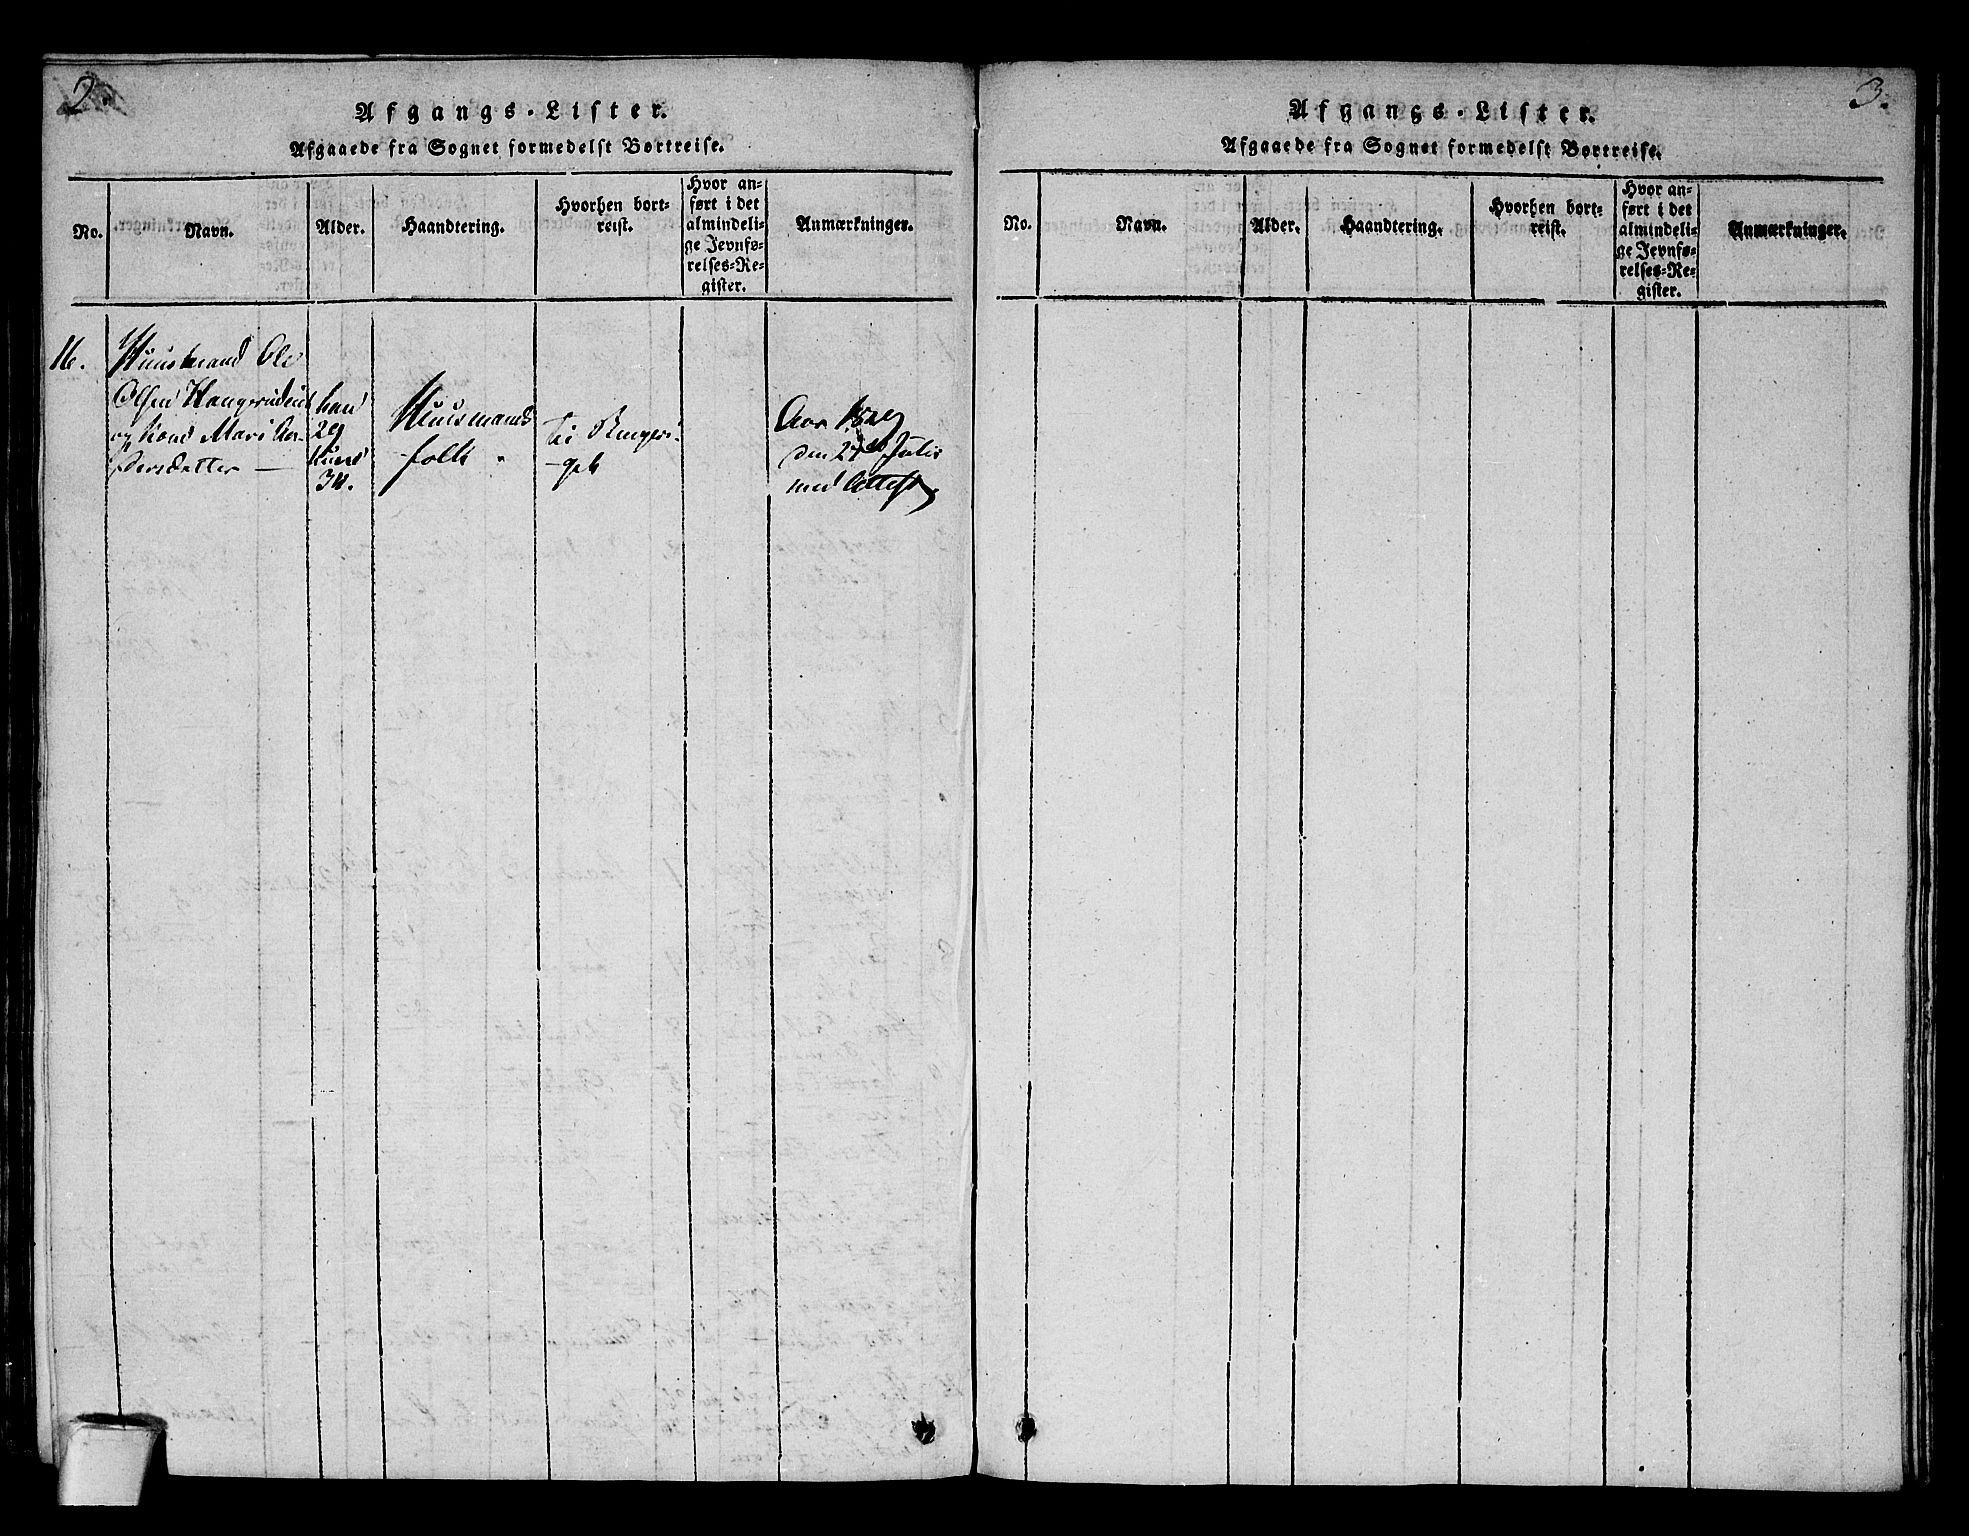 2.
Afgangs-Lister.
Afgaaede fra Sognet formedelst Bortreise.
No.
Navn.
Alder.
Haandtering.
Hvorhen bort-
reist.
Hvor an-
ført i det
almindeli-
ge Jevnfø-
relses-Re-
gister.
Anmærkninger.
16.
Huusmand Ole
Olsen
og Kone Mari An-
dersdatter —
han
29
Kone
34.
Huusmands
folk
til Ringeri-
-geh
Aar 1829
den 27de Julii
med Attest
3.
Afgangs-Lister.
Afgaaede fra Sognet formedelst Bortreise.
No.
Navn.
Alder.
Haandtering.
Hvorhen bort-
reist.
Hvor an-
ført i det
almindeli-
ge Jevnfø-
relses-Re-
gister.
Anmærkninger.